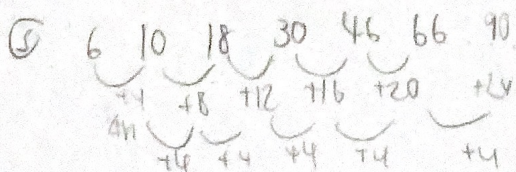 ⑤ 6 10 18 30 46 66 90
+4 +8 +12 +16 +20 +24
4n +4 +4 +4 +4 +4